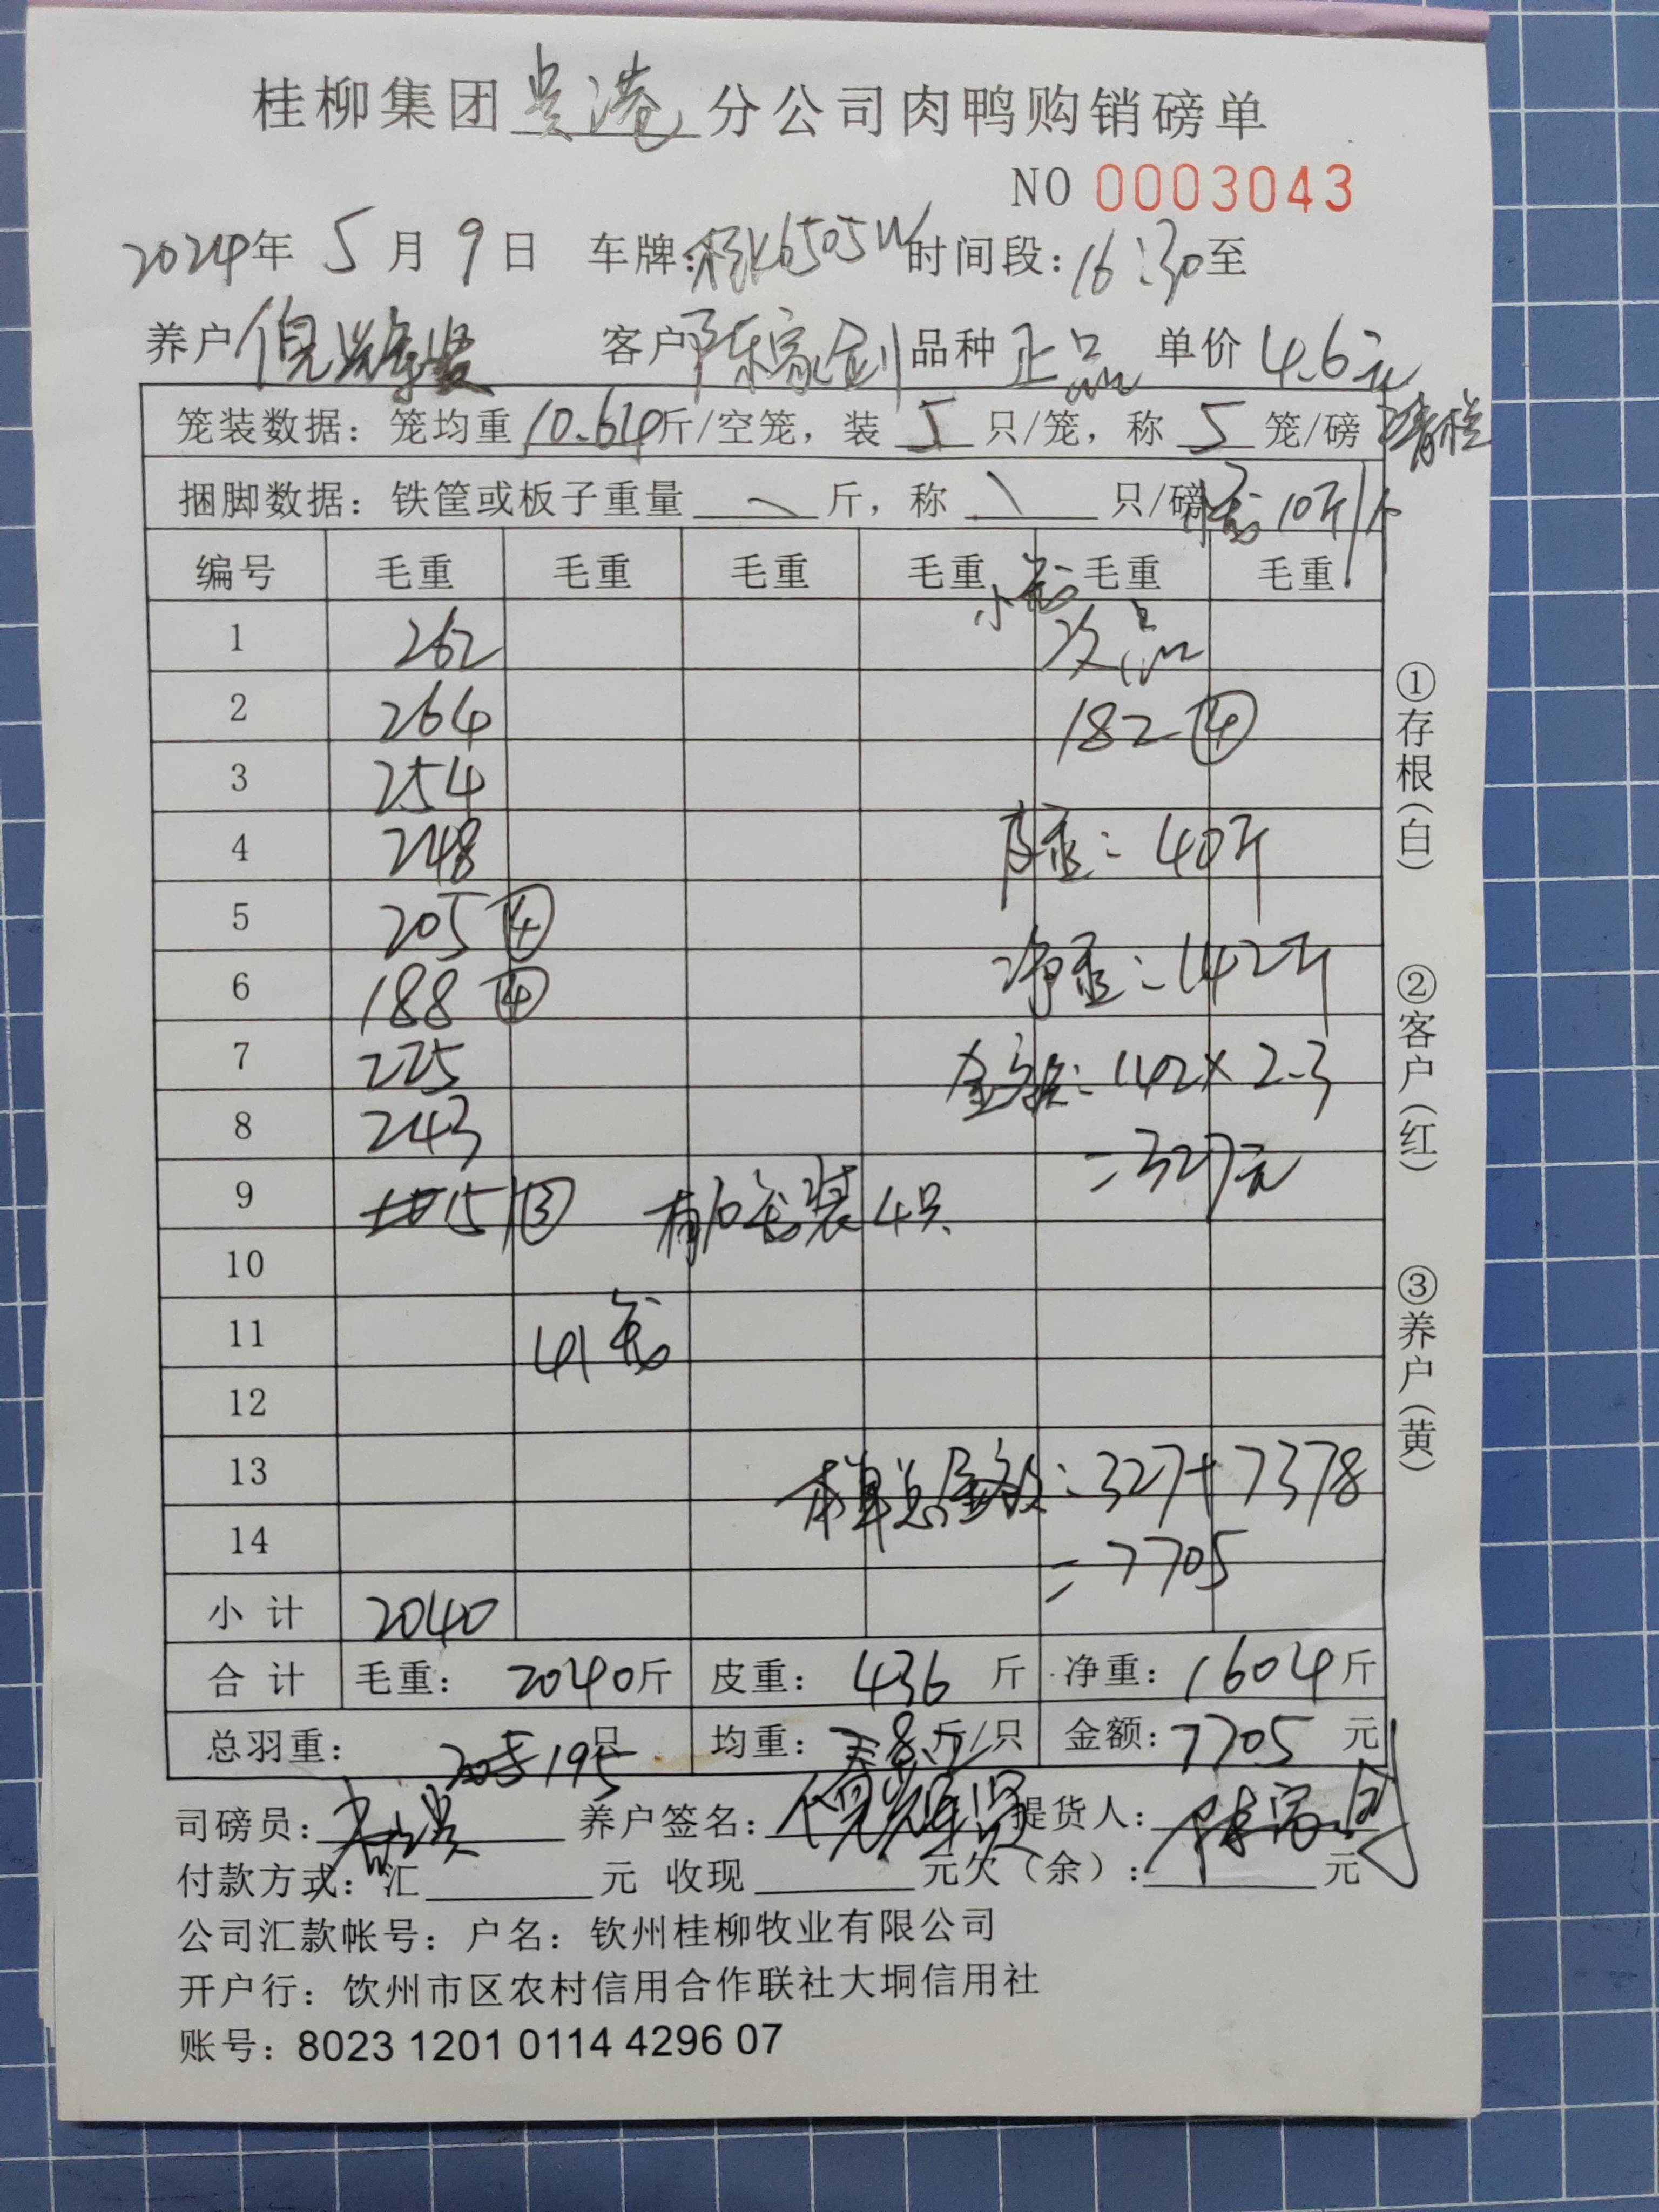 桂柳集团贵港分公司肉鸭购销磅单
NO 0003043
2024年 5月 9日 车牌:桂K6505W 时间段:16:30至
养户 倪 客户 陈家剑 品种 正品 单价 4.6元
笼装数据: 笼均重 10.64斤/空笼, 装 5 只/笼, 称 5 笼/磅 清栏
捆脚数据: 铁筐或板子重量 \ 斤, 称 \ 只/磅 笼10斤/个
编号 毛重 毛重 毛重 毛重 毛重 毛重
小笼
1 262 次品
2 264 182④
3 254
4 248 皮重:40斤
5 205④
6 188④ 净重:142斤
7 225 金额:142×2.3
8 243 =327元
9 151③ 有1笼装4只
10
11 41笼
12
13 本单总金额:327+7378
14 =7705
小计 2040
合计 毛重: 2040斤 皮重: 436 斤 净重: 1604斤
总羽重: 195只 均重: 8. 斤/只 金额:7705 元
司磅员: 养户签名: 倪 提货人: 陈家剑
付款方式: 汇 元 收现 元欠(余): 元
公司汇款帐号: 户名: 钦州桂柳牧业有限公司
开户行: 饮州市区农村信用合作联社大垌信用社
账号: 8023 1201 0114 4296 07
①存根(白)
②客户(红)
③养户(黄)